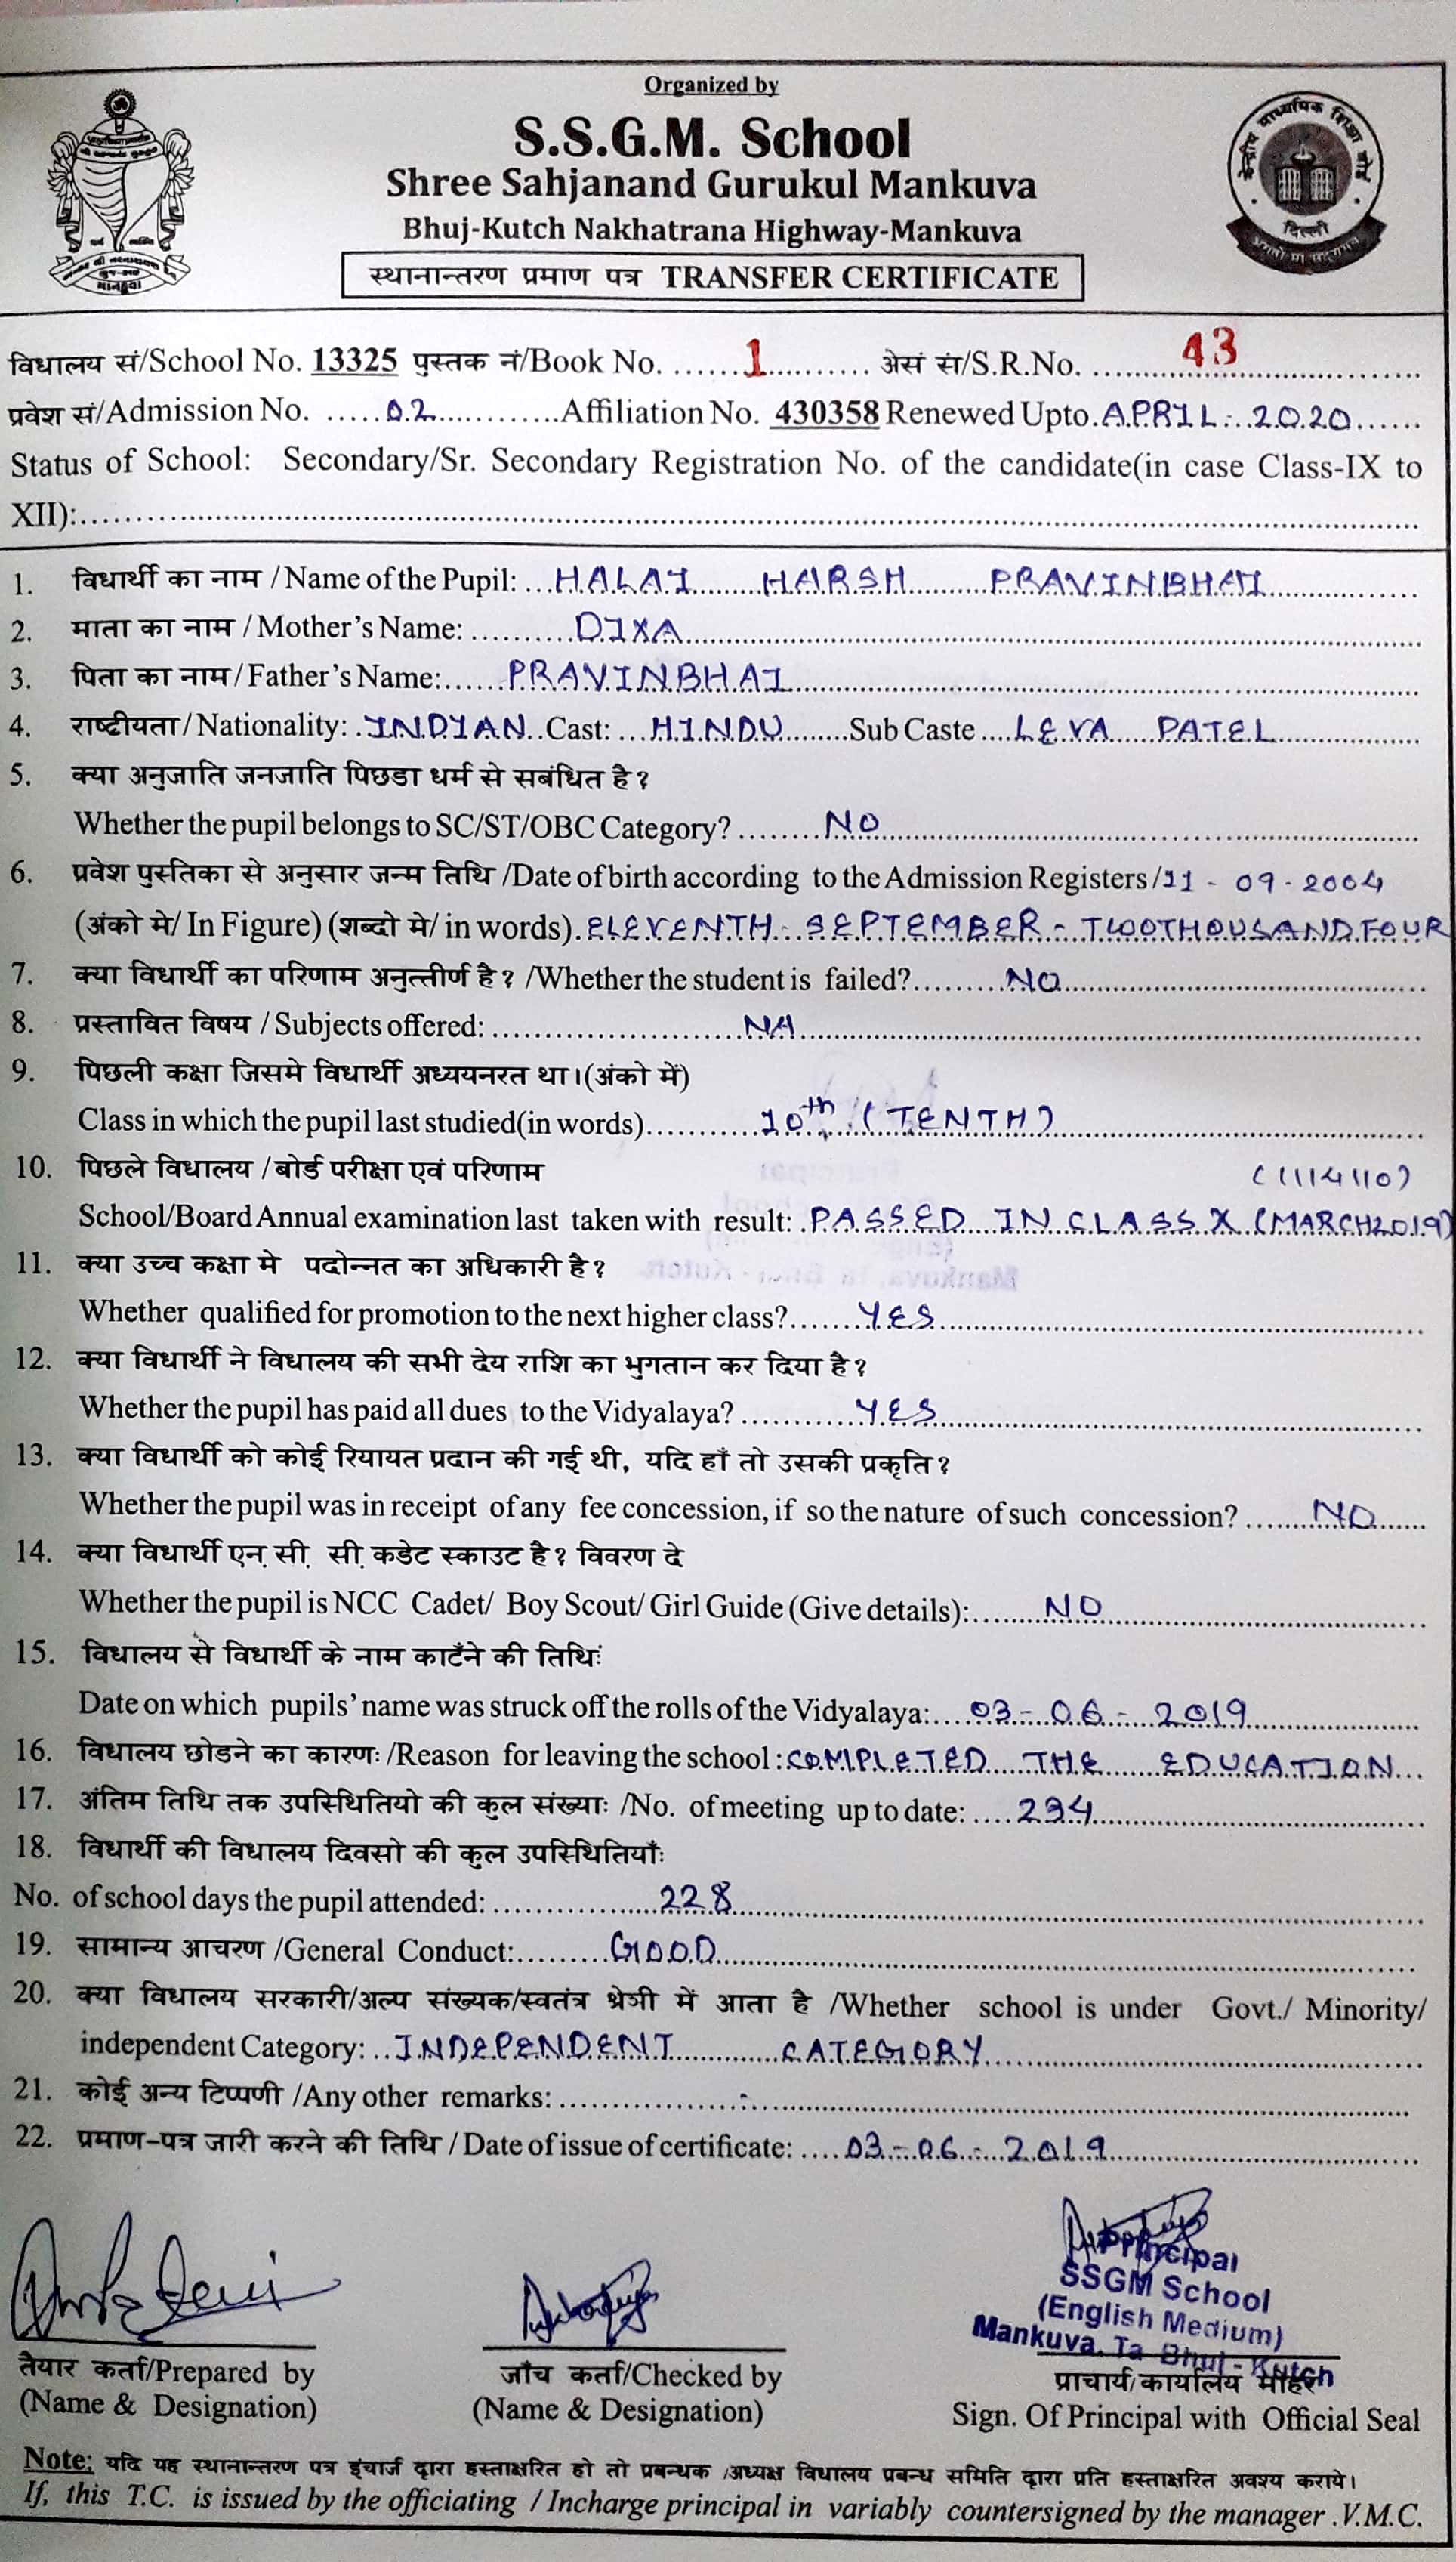 Organized by
S.S.G.M. School
Shree Sahjanand Gurukul Mankuva
Bhuj-Kutch Nakhatrana Highway-Mankuva
स्थानान्तरण प्रमाण पत्र TRANSFER CERTIFICATE
केन्द्रीय माध्यमिक शिक्षा बोर्ड
दिल्ली
विधालय सं/School No. 13325 पुस्तक नं/Book No. .......1........... अेसं सं/S.R.No. ........43........
प्रवेश सं/Admission No. .....02............Affiliation No. 430358 Renewed Upto.APRIL-2020......
Status of School: Secondary/Sr. Secondary Registration No. of the candidate(in case Class-IX to
XII):........................
1. विधार्थी का नाम / Name of the Pupil: ...HALAI HARSH PRAVINBHAI........
2. माता का नाम / Mother's Name: ..........DIXA........
3. पिता का नाम/ Father's Name:......PRAVINBHAI........
4. राष्टीयता/ Nationality: .INDIAN.. Cast: ...HINDU........Sub Caste ....LEVA PATEL........
5. क्या अनुजाति जनजाति पिछडा धर्म से सबंधित है?
Whether the pupil belongs to SC/ST/OBC Category? ........NO........
6. प्रवेश पुस्तिका से अनुसार जन्म तिथि /Date of birth according to the Admission Registers /11 - 09 - 2004
(अंको मे/ In Figure) (शब्दो मे/ in words). ELEVENTH - SEPTEMBER - TWOTHOUSAND FOUR
7. क्या विधार्थी का परिणाम अनुत्तीर्ण है? /Whether the student is failed?.........NO........
8. प्रस्तावित विषय / Subjects offered: ........NA........
9. पिछली कक्षा जिसमे विधार्थी अध्ययनरत था।(अंको में)
Class in which the pupil last studied(in words)...........10th (TENTH)........
10. पिछले विधालय /बोर्ड परीक्षा एवं परिणाम (1114110)
School/Board Annual examination last taken with result: .PASSED IN CLASS X (MARCH2019)
11. क्या उच्च कक्षा मे पदोन्नत का अधिकारी है?
Whether qualified for promotion to the next higher class?.......YES........
12. क्या विधार्थी ने विधालय की सभी देय राशि का भुगतान कर दिया है?
Whether the pupil has paid all dues to the Vidyalaya? ...........YES........
13. क्या विधार्थी को कोई रियायत प्रदान की गई थी, यदि हाँ तो उसकी प्रकृति?
Whether the pupil was in receipt of any fee concession, if so the nature of such concession? ........NO......
14. क्या विधार्थी एन.सी. सी. कडेट स्काउट है? विवरण दे
Whether the pupil is NCC Cadet/ Boy Scout/ Girl Guide (Give details):.......NO........
15. विधालय से विधार्थी के नाम काटँने की तिथिः
Date on which pupils' name was struck off the rolls of the Vidyalaya:....03 - 06 - 2019........
16. विधालय छोडने का कारणः /Reason for leaving the school : COMPLETED THE EDUCATION...
17. अंतिम तिथि तक उपस्थितियो की कुल संख्याः /No. of meeting up to date: ....234........
18. विधार्थी की विधालय दिवसो की कुल उपस्थितियाँः
No. of school days the pupil attended: ........228........
19. सामान्य आचरण /General Conduct:.........GOOD........
20. क्या विधालय सरकारी/अल्प संख्यक/स्वतंत्र श्रेणी में आता है /Whether school is under Govt./ Minority/
independent Category: ..INDEPENDENT CATEGORY........
21. कोई अन्य टिप्पणी /Any other remarks: ........-........
22. प्रमाण-पत्र जारी करने की तिथि / Date of issue of certificate: ....03 - 06 - 2019........
Principal
SSGM School
(English Medium)
Mankuva, Ta Bhuj - Kutch
तैयार कर्ता/Prepared by
(Name & Designation)
जाँच कर्ता/Checked by
(Name & Designation)
प्राचार्य/कार्यालय मोहर
Sign. Of Principal with Official Seal
Note: यदि यह स्थानान्तरण पत्र इंचार्ज द्वारा हस्ताक्षरित हो तो प्रबन्धक /अध्यक्ष विधालय प्रबन्ध समिति द्वारा प्रति हस्ताक्षरित अवश्य कराये।
If, this T.C. is issued by the officiating / Incharge principal in variably countersigned by the manager .V.M.C.